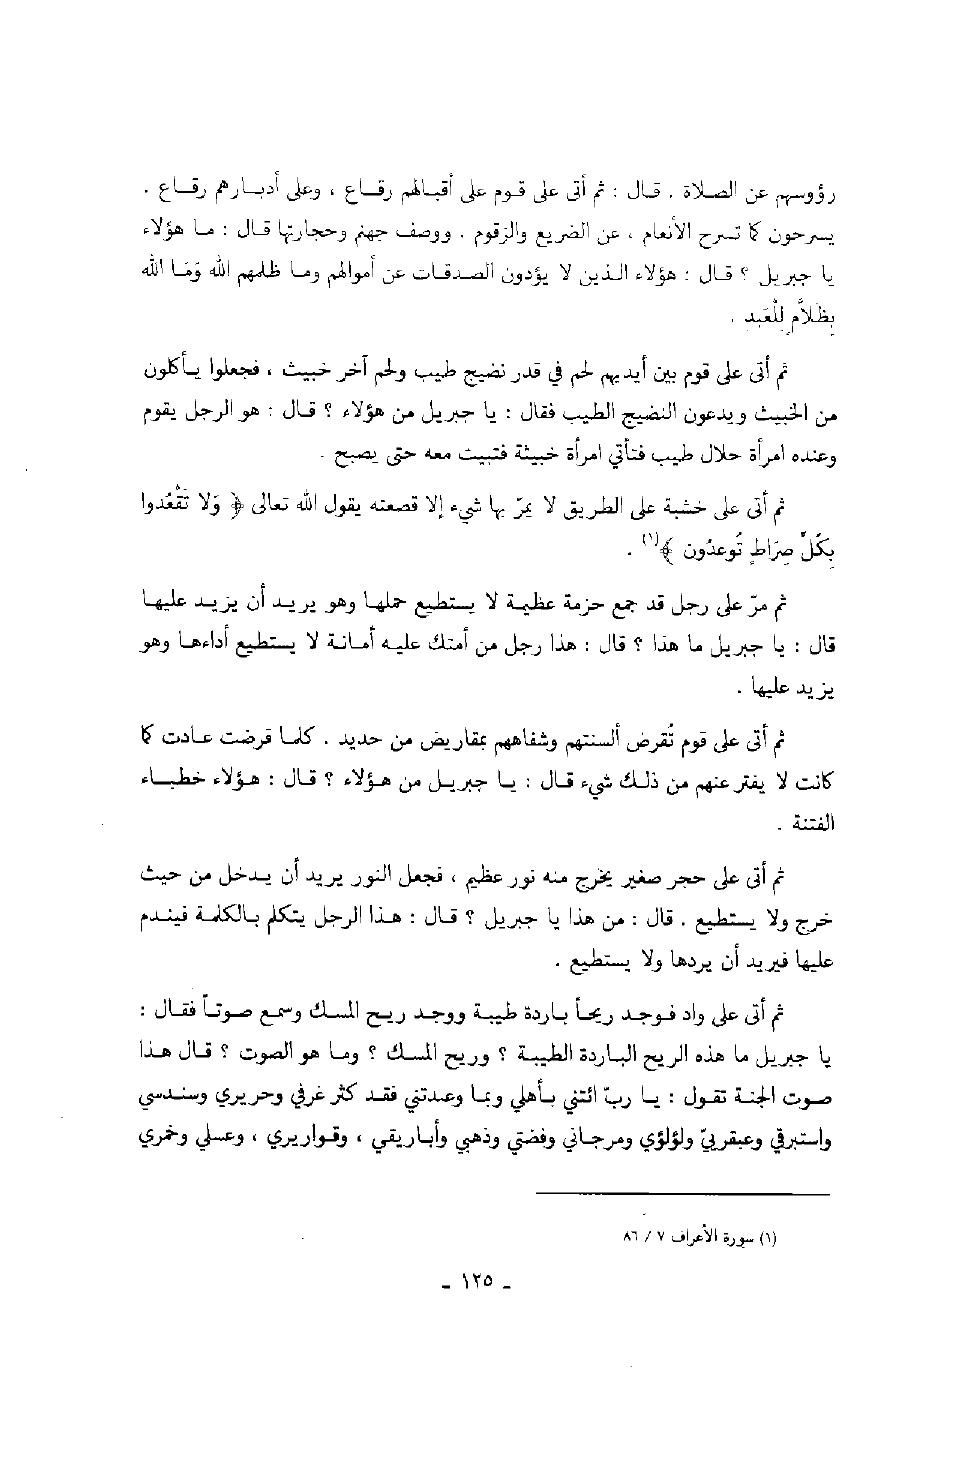 رؤوسهم عن الصلاة . قال : ثم أتى على قوم على أقبالهم رقاع ، وعلى أدبارهم رقاع .
يسرحون كما تسرح الأنعام ، عن الضريع والزقوم . ووصف جهنم وحجارتها قال : ما هؤلاء
يا جبريل ؟ قال : هؤلاء الذين لا يؤدون الصدقات عن أموالهم وما ظلمهم الله وَمَا الله
بِظَلاَّمٍ لِلْعَبد .
ثم أتى على قوم بين أيديهم لحم في قدر نضيج طيب ولحم آخر خبيث ، فجعلوا يأكلون
من الخبيث ويدعون النضيج الطيب فقال : يا جبريل من هؤلاء ؟ قال : هو الرجل يقوم
وعنده امرأة حلال طيب فتأتي امرأة خبيثة فتبيت معه حتى يصبح .
ثم أتى على خشبة على الطريق لا يمرّ بها شيء إلا قصعته يقول الله تعالى ﴿ وَلا تَقْعُدوا
بِكُلِّ صِرَاطٍ تُوعدُون ﴾(١) .
ثم مرّ على رجل قد جمع حزمة عظيمة لا يستطيع حملها وهو يريد أن يزيد عليها
قال : يا جبريل ما هذا ؟ قال : هذا رجل من أمتك عليه أمانة لا يستطيع أداءها وهو
يزيد عليها .
ثم أتى على قوم تُقرض ألسنتهم وشفاههم بمقاريض من حديد . كلما قرضت عادت كما
كانت لا يفتر عنهم من ذلك شيء قال : يا جبريل من هؤلاء ؟ قال : هؤلاء خطباء
الفتنة .
ثم أتى على حجر صغير يخرج منه نور عظيم ، فجعل النور يريد أن يدخل من حيث
خرج ولا يستطيع . قال : من هذا يا جبريل ؟ قال : هذا الرجل يتكلم بالكلمة فيندم
عليها فيريد أن يردها ولا يستطيع .
ثم أتى على واد فوجد ريحاً باردة طيبة ووجد ريح المسك وسمع صوتاً فقال :
يا جبريل ما هذه الريح الباردة الطيبة ؟ وريح المسك ؟ وما هو الصوت ؟ قال هذا
صوت الجنة تقول : يا ربّ ائتني بأهلي وبما وعدتني فقد كثر غرفي وحريري وسندسي
واستبرقي وعبقريّ ولؤلؤي ومرجاني وفضتي وذهبي وأباريقي ، وقواريري ، وعسلي وخمري
(١) سورة الأعراف ٧ / ٨٦
ـ ١٢٥ ـ